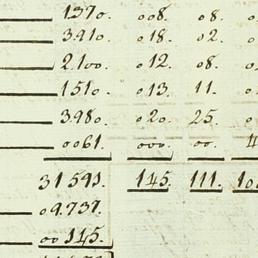 1370. 008. 08. 0
3.910 018. 02. 0
2.100. 012. 08. 0
1510. 013. 11. 0
3980. 020. 25. 0
0061. 000. 00. 4
31591. 145. 111. 10
09.737.
00145.